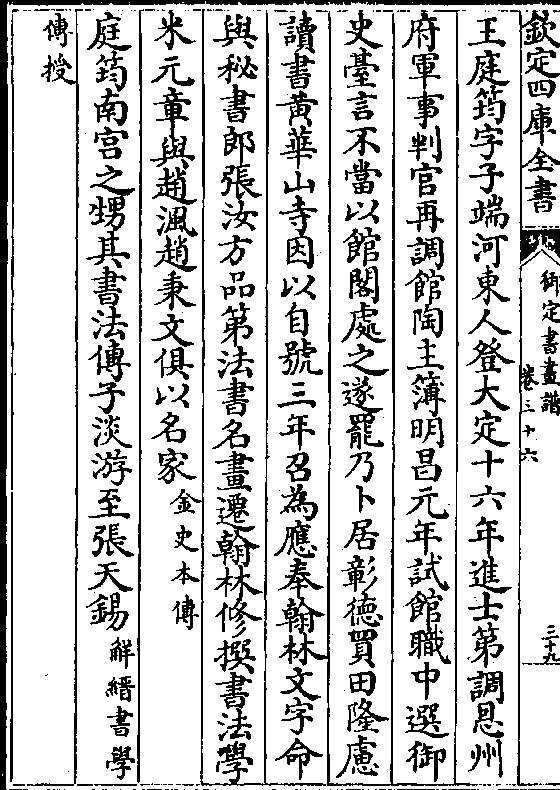 欽定四庫全書
御定書畫譜
卷三十六
三十九
王庭筠字子端河東人登大定十六年進士第調恩州
府軍事判官再調館陶主簿明昌元年試館職中選御
史臺言不當以館閣處之遂罷乃卜居彰徳買田隆慮
讀書黄華山寺因以自號三年召為應奉翰林文字命
與秘書郎張汝方品第法書名畫遷翰林修撰書法學
米元章與趙渢趙秉文俱以名家金史本傳
庭筠南宫之甥其書法傳子淡游至張天錫解縉書學
傳授